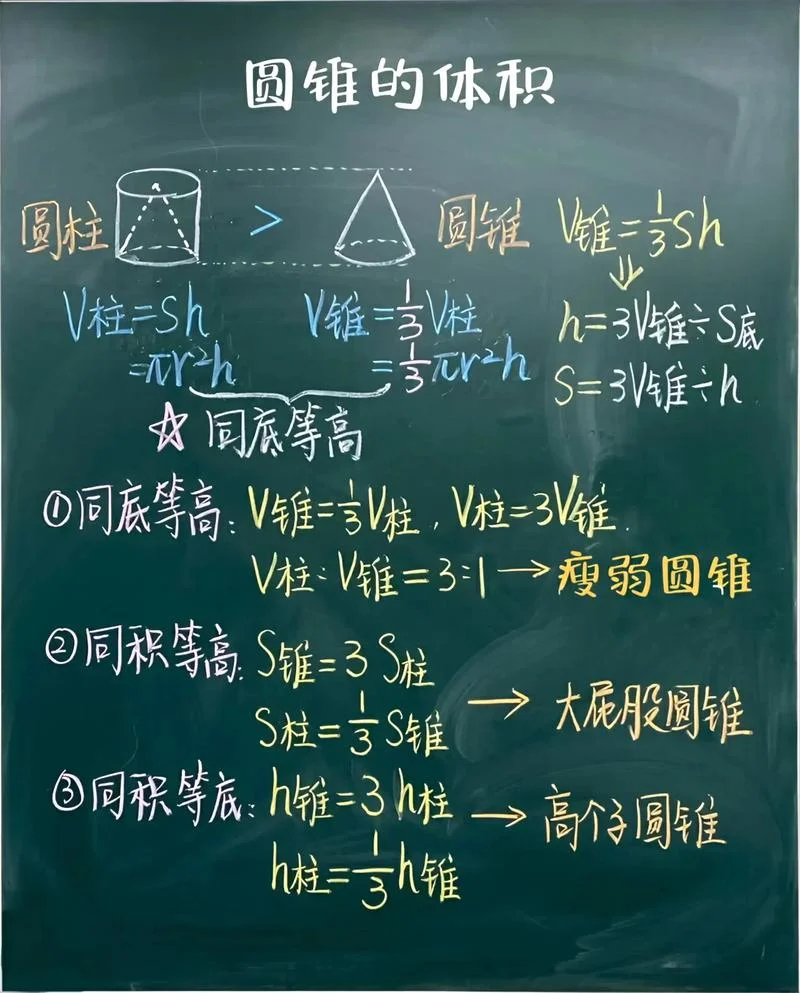 圆锥的体积
圆柱 > 圆锥
V锥=1/3Sh
V柱=Sh
=πr²h
V锥=1/3V柱
=1/3πr²h
h=3V锥÷S底
S=3V锥÷h
☆同底等高
①同底等高:V锥=1/3V柱,V柱=3V锥.
V柱:V锥=3:1→瘦弱圆锥
②同积等高:S锥=3S柱
S柱=1/3S锥
→大屁股圆锥
③同积等底:h锥=3h柱→高个子圆锥
h柱=1/3h锥